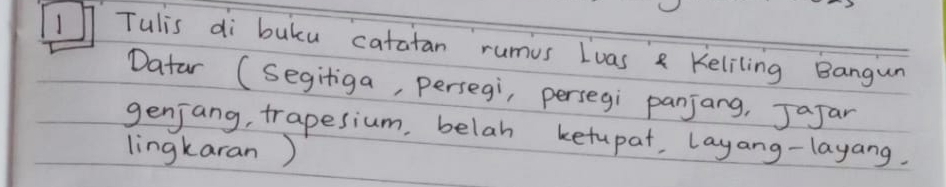 1 Tulis di buku catatan rumus Luas & Keliling Bangun
Datar ( segitiga , persegi, persegi panjang, Jajar
genjang, trapesium, belah ketupat, Layang-layang,
lingkaran )